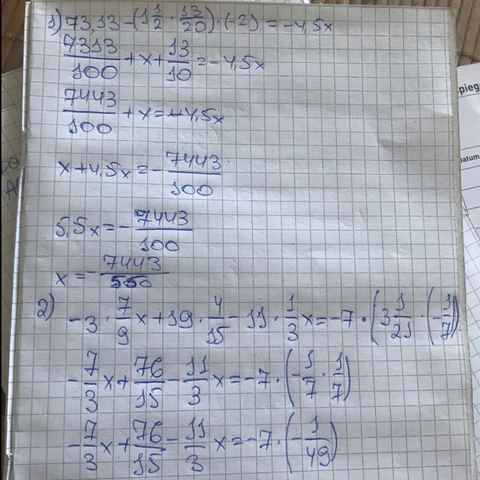 1) 73,13 - (1 1/2 · 13/20) · (-2) = -4,5x
7313/100 + x + 13/10 = -4,5x
7443/100 + x = -4,5x
x + 4,5x = - 7443/100
5,5x = - 7443/100
x = - 7443/550
2) -3 · 7/9 x + 19 · 4/15 - 11 · 1/3 x = -7 · (3 1/21 · (- 1/7)
- 7/3 x + 76/15 - 11/3 x = -7 · (- 1/7 · 1/7)
- 7/3 x + 76/15 - 11/3 x = -7 · (- 1/49)